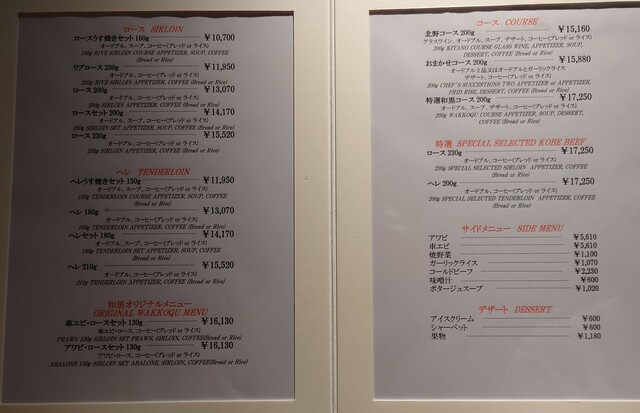 ロース SIRLOIN
ロースうす焼きセット 160g ¥10,700
オードブル、スープ、コーヒー(ブレッド or ライス)
160g RIVE SIRLOIN COURSE APPETIZER, SOUP, COFFEE
(Bread or Rice)
リブロース 230g ¥11,950
オードブル、コーヒー(ブレッド or ライス)
230g RIVE SIRLOIN APPETIZER, COFFEE (Bread or Rice)
ロース 200g ¥13,070
オードブル、コーヒー(ブレッド or ライス)
200g SIRLOIN APPETIZER, COFFEE (Bread or Rice)
ロースセット 200g ¥14,170
オードブル、スープ、コーヒー(ブレッド or ライス)
200g SIRLOIN SET APPETIZER, SOUP, COFFEE (Bread or Rice)
ロース 230g ¥15,520
オードブル、コーヒー(ブレッド or ライス)
230g SIRLOIN APPETIZER, COFFEE (Bread or Rice)
ヘレ TENDERLOIN
ヘレうす焼きセット 130g ¥11,950
オードブル、スープ、コーヒー(ブレッド or ライス)
130g TENDERLOIN COURSE APPETIZER, SOUP, COFFEE
(Bread or Rice)
ヘレ 180g ¥13,070
オードブル、コーヒー(ブレッド or ライス)
180g TENDERLOIN APPETIZER, COFFEE (Bread or Rice)
ヘレセット 180g ¥14,170
オードブル、スープ、コーヒー(ブレッド or ライス)
180g TENDERLOIN SET APPETIZER, SOUP, COFFEE
(Bread or Rice)
ヘレ 210g ¥15,520
オードブル、コーヒー(ブレッド or ライス)
210g TENDERLOIN APPETIZER, COFFEE (Bread or Rice)
和黒オリジナルメニュー
ORIGINAL WAKKOQU MENU
車エビ・ロースセット 130g ¥16,130
車エビ・ロース、コーヒー(ブレッド or ライス)
PRAWN 130g SIRLOIN SET PRAWN, SIRLOIN, COFFEE(Bread or Rice)
アワビ・ロースセット 130g ¥16,130
アワビ・ロース、コーヒー(ブレッド or ライス)
ABALONE 130g SIRLOIN SET ABALONE, SIRLOIN, COFFEE(Bread or Rice)
コース COURSE
北野コース 200g ¥15,160
グラスワイン、オードブル、スープ、デザート、コーヒー(ブレッド or ライス)
200g KITANO COURSE GLASS WINE, APPETIZER, SOUP,
DESSERT, COFFEE (Bread or Rice)
おまかせコース 200g ¥15,880
オードブル2品又はオードブルとガーリックライス
デザート、コーヒー(ブレッド or ライス)
200g CHEF'S SUCCESTIONS TWO APPETIZER or APPETIZER,
FRID RISE, DESSERT, COFFEE (Bread or Rice)
特選和黒コース 200g ¥17,250
オードブル、スープ、デザート、コーヒー(ブレッド or ライス)
200g WAKKOQU COURSE APPETIZER, SOUP, DESSERT,
COFFEE (Bread or Rice)
特選 SPECIAL SELECTED KOBE BEEF
ロース 230g ¥17,250
オードブル、コーヒー(ブレッド or ライス)
230g SPECIAL SELECTED SIRLOIN APPETIZER, COFFEE
(Bread or Rice)
ヘレ 200g ¥17,250
オードブル、コーヒー(ブレッド or ライス)
200g SPECIAL SELECTED TENDERLOIN APPETIZER, COFFEE
(Bread or Rice)
サイドメニュー SIDE MENU
アワビ ¥5,610
車エビ ¥5,610
焼野菜 ¥1,100
ガーリックライス ¥1,070
コールドビーフ ¥2,230
味噌汁 ¥600
ポタージュスープ ¥1,020
デザート DESSERT
アイスクリーム ¥600
シャーベット ¥600
果物 ¥1,180